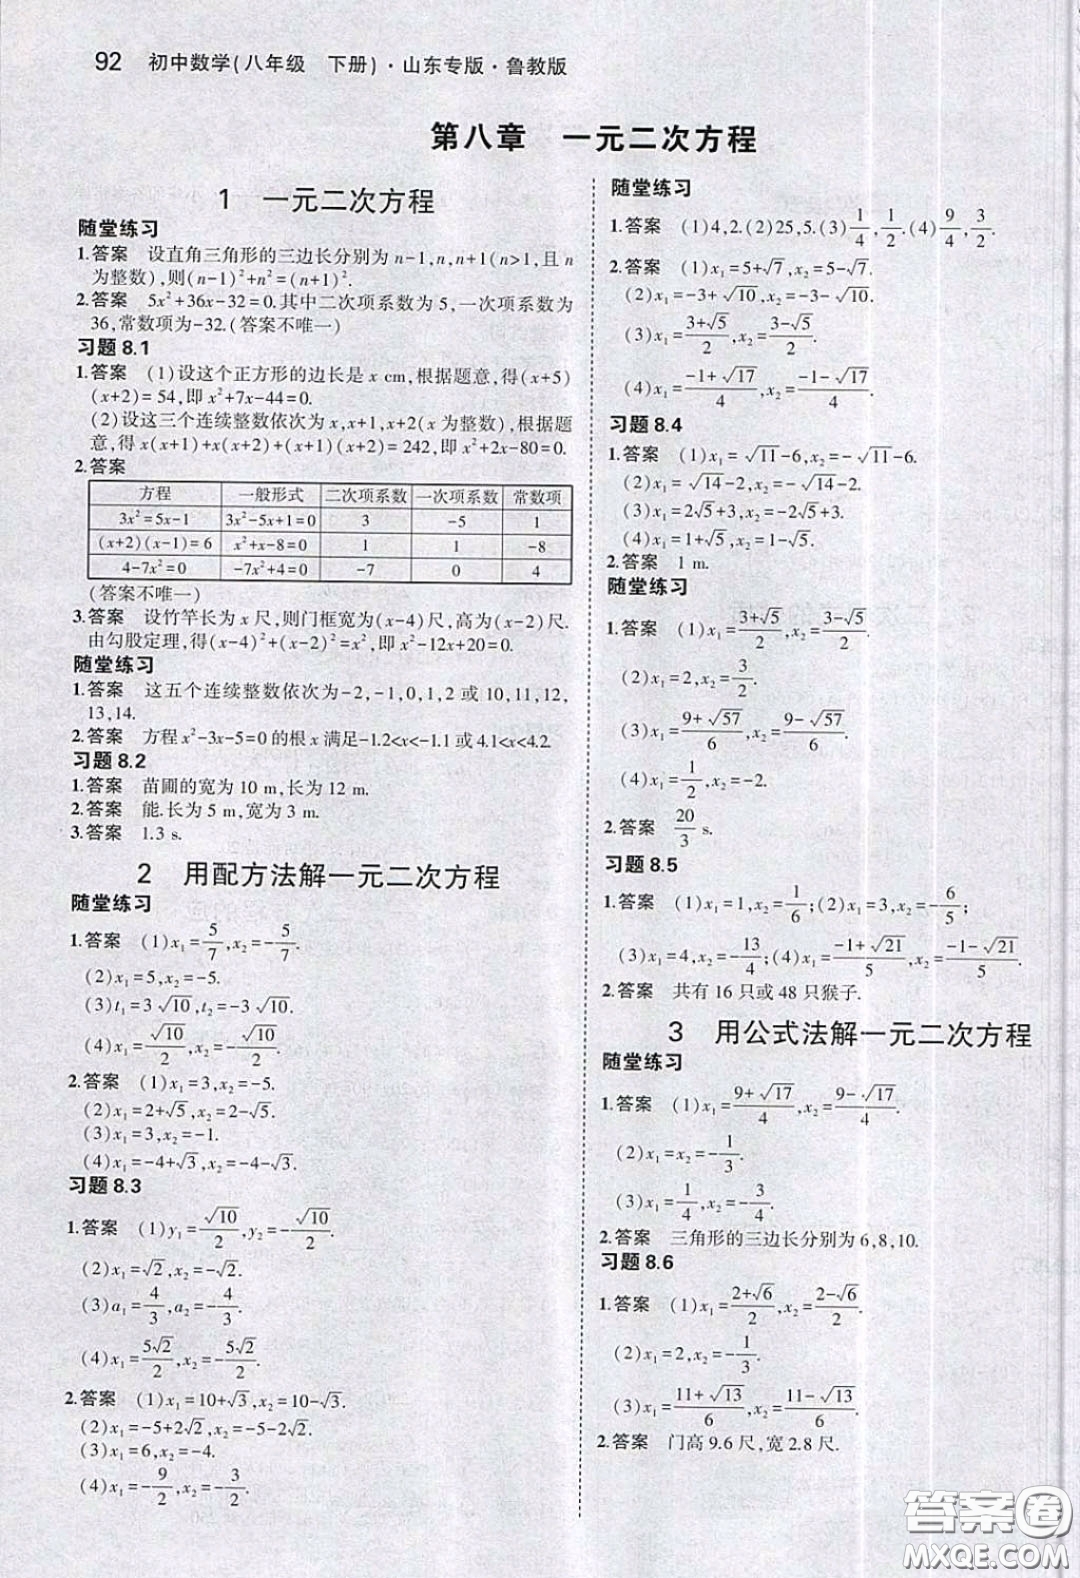 92 初中数学(八年级 下册)·山东专版·鲁教版
第八章 一元二次方程
1 一元二次方程
随堂练习
1.答案 设直角三角形的三边长分别为 n-1,n,n+1(n>1,且 n
为整数),则(n-1)²+n²=(n+1)².
2.答案 5x²+36x-32=0.其中二次项系数为 5,一次项系数为
36,常数项为-32.(答案不唯一)
习题 8.1
1.答案 (1)设这个正方形的边长是 x cm,根据题意,得(x+5)
(x+2)=54,即 x²+7x-44=0.
(2)设这三个连续整数依次为 x,x+1,x+2(x 为整数),根据题
意,得 x(x+1)+x(x+2)+(x+1)(x+2)=242,即 x²+2x-80=0.
2.答案
方程 一般形式 二次项系数 一次项系数 常数项
3x²=5x-1 3x²-5x+1=0 3 -5 1
(x+2)(x-1)=6 x²+x-8=0 1 1 -8
4-7x²=0 -7x²+4=0 -7 0 4
(答案不唯一)
3.答案 设竹竿长为 x 尺,则门框宽为(x-4)尺,高为(x-2)尺.
由勾股定理,得(x-4)²+(x-2)²=x²,即 x²-12x+20=0.
随堂练习
1.答案 这五个连续整数依次为-2,-1,0,1,2 或 10,11,12,
13,14.
2.答案 方程 x²-3x-5=0 的根 x 满足-1.2<x<-1.1 或 4.1<x<4.2.
习题 8.2
1.答案 苗圃的宽为 10 m,长为 12 m.
2.答案 能.长为 5 m,宽为 3 m.
3.答案 1.3 s.
2 用配方法解一元二次方程
随堂练习
1.答案 (1)x₁=5/7,x₂=-5/7.
(2)x₁=5,x₂=-5.
(3)t₁=3√10,t₂=-3√10.
(4)x₁=√10/2,x₂=-√10/2.
2.答案 (1)x₁=3,x₂=-5.
(2)x₁=2+√5,x₂=2-√5.
(3)x₁=3,x₂=-1.
(4)x₁=-4+√3,x₂=-4-√3.
习题 8.3
1.答案 (1)y₁=√10/2,y₂=-√10/2.
(2)x₁=√2,x₂=-√2.
(3)a₁=4/3,a₂=-4/3.
(4)x₁=5√2/2,x₂=-5√2/2.
2.答案 (1)x₁=10+√3,x₂=10-√3.
(2)x₁=-5+2√2,x₂=-5-2√2.
(3)x₁=6,x₂=-4.
(4)x₁=-9/2,x₂=-3/2.
随堂练习
1.答案 (1)4,2.(2)25,5.(3)1/4,1/2.(4)9/4,3/2.
2.答案 (1)x₁=5+√7,x₂=5-√7.
(2)x₁=-3+√10,x₂=-3-√10.
(3)x₁=(3+√5)/2,x₂=(3-√5)/2.
(4)x₁=(-1+√17)/4,x₂=(-1-√17)/4.
习题 8.4
1.答案 (1)x₁=√11-6,x₂=-√11-6.
(2)x₁=√14-2,x₂=-√14-2.
(3)x₁=2√5+3,x₂=-2√5+3.
(4)x₁=1+√5,x₂=1-√5.
2.答案 1 m.
随堂练习
1.答案 (1)x₁=(3+√5)/2,x₂=(3-√5)/2.
(2)x₁=2,x₂=3/2.
(3)x₁=(9+√57)/6,x₂=(9-√57)/6.
(4)x₁=1/2,x₂=-2.
2.答案 20/3 s.
习题 8.5
1.答案 (1)x₁=1,x₂=1/6;(2)x₁=3,x₂=-6/5;
(3)x₁=4,x₂=-13/4;(4)x₁=(-1+√21)/5,x₂=(-1-√21)/5.
2.答案 共有 16 只或 48 只猴子.
3 用公式法解一元二次方程
随堂练习
1.答案 (1)x₁=(9+√17)/4,x₂=(9-√17)/4.
(2)x₁=x₂=-1/3.
(3)x₁=1/4,x₂=-3/4.
2.答案 三角形的三边长分别为 6,8,10.
习题 8.6
1.答案 (1)x₁=(2+√6)/2,x₂=(2-√6)/2.
(2)x₁=2,x₂=-1/3.
(3)x₁=(11+√13)/6,x₂=(11-√13)/6.
2.答案 门高 9.6 尺,宽 2.8 尺.
答案圈
MXQE.COM